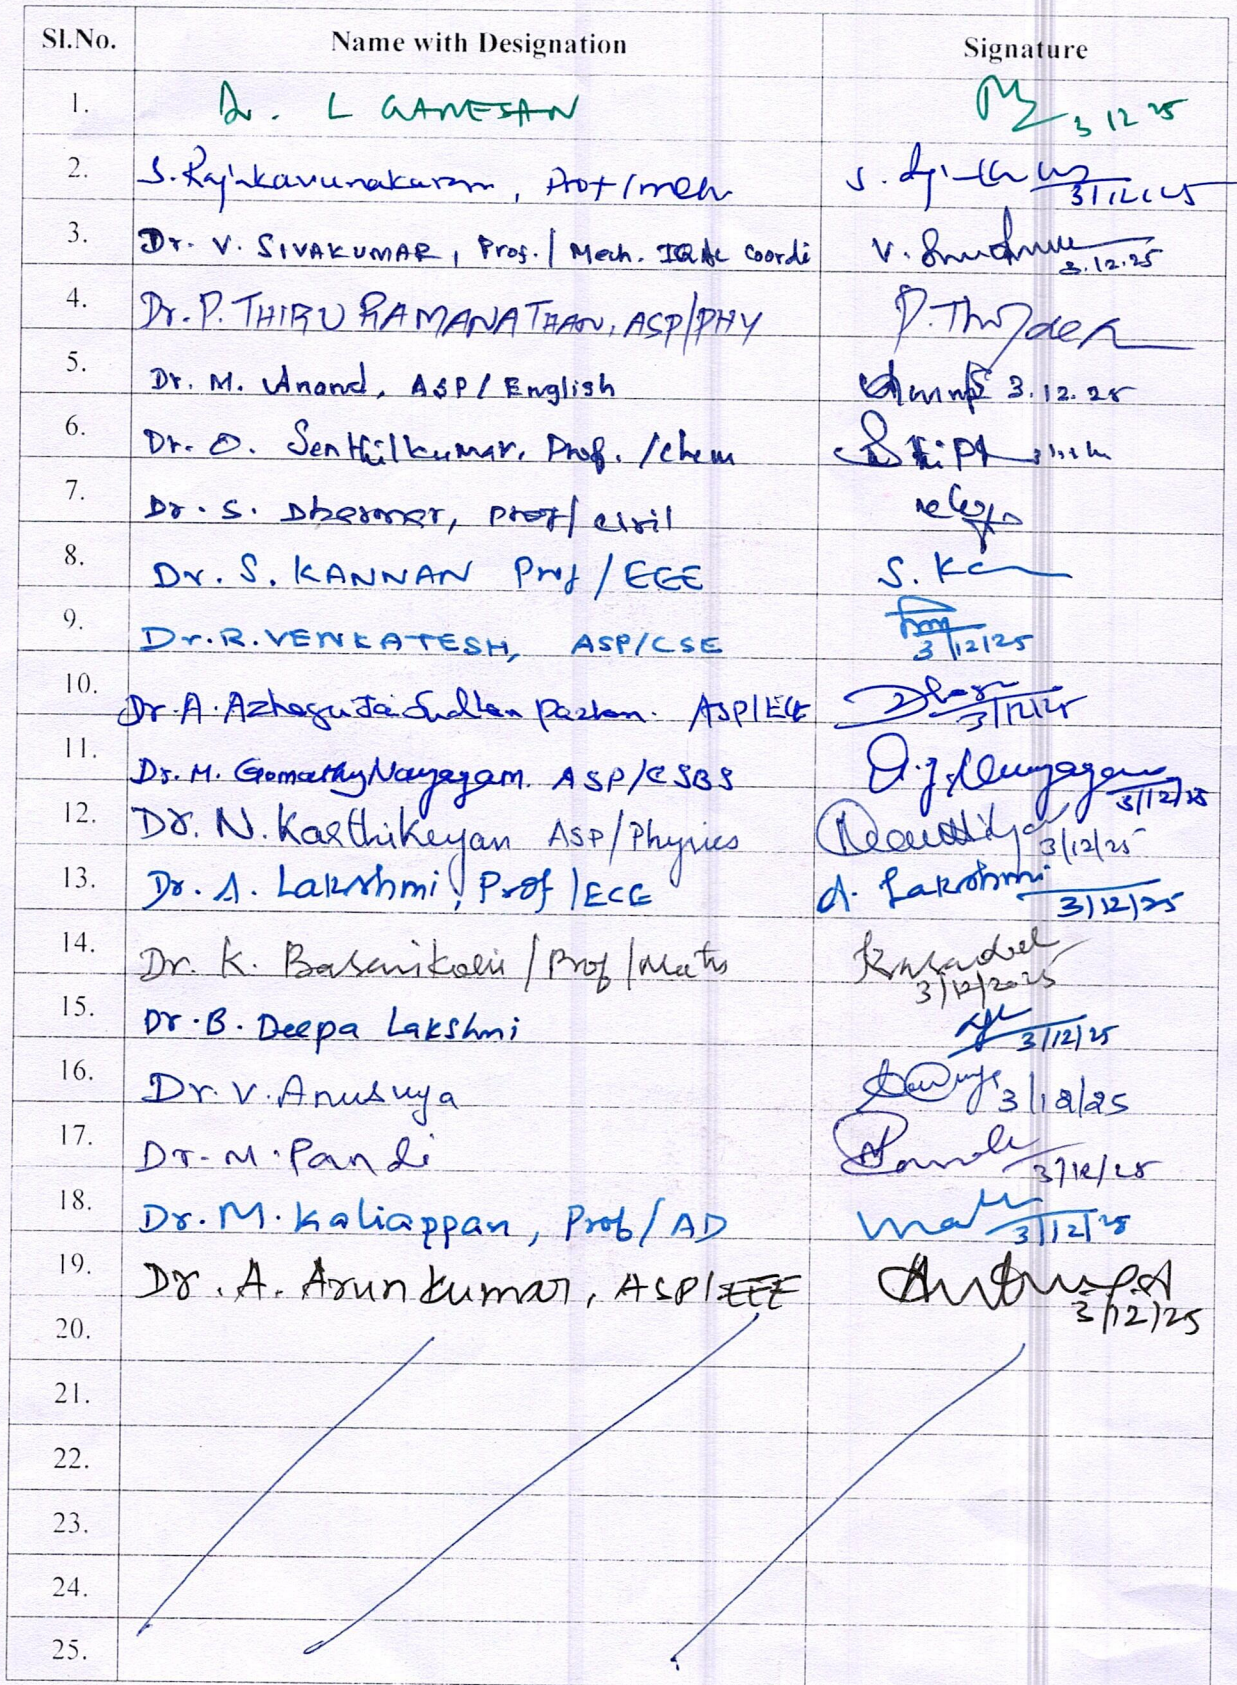 Sl.No. Name with Designation Signature
1. Dr. L GANESAN 3 12 25
2. S. Rajakarunakaran, Prof/mech 3/12/25
3. Dr. V. SIVAKUMAR, Prof. / Mech. IQAC Coordi V. 3.12.25
4. Dr. P. THIRU RAMANATHAN, ASP/PHY
5. Dr. M. Anand, ASP/ English 3.12.25
6. Dr. O. Senthilkumar, Prof. /chem
7. Dr. S. Dharmar, Prof/ civil
8. Dr. S. KANNAN Prof / EEE S. Ka
9. Dr. R. VENKATESH, ASP/CSE 3/12/25
10. Dr. A. Azhagu Jaisudhan Pazhani. ASP/ECE 3/12/25
11. Dr. M. Gomathy Nayagam. ASP/CSBS 3/12/25
12. Dr. N. Karthikeyan ASP/Physics 3/12/25
13. Dr. A. Lakshmi, Prof /ECE A. Lakshmi 3/12/25
14. Dr. K. /Prof /Maths 3/12/2025
15. Dr. B. Deepa Lakshmi 3/12/25
16. Dr. V. Anusuya 3/12/25
17. Dr. M. Pandi 3/12/25
18. Dr. M. Kaliappan, Prof/AD 3/12/25
19. Dr. A. Arunkumar, ASP/EEE 3/12/25
20.
21.
22.
23.
24.
25.